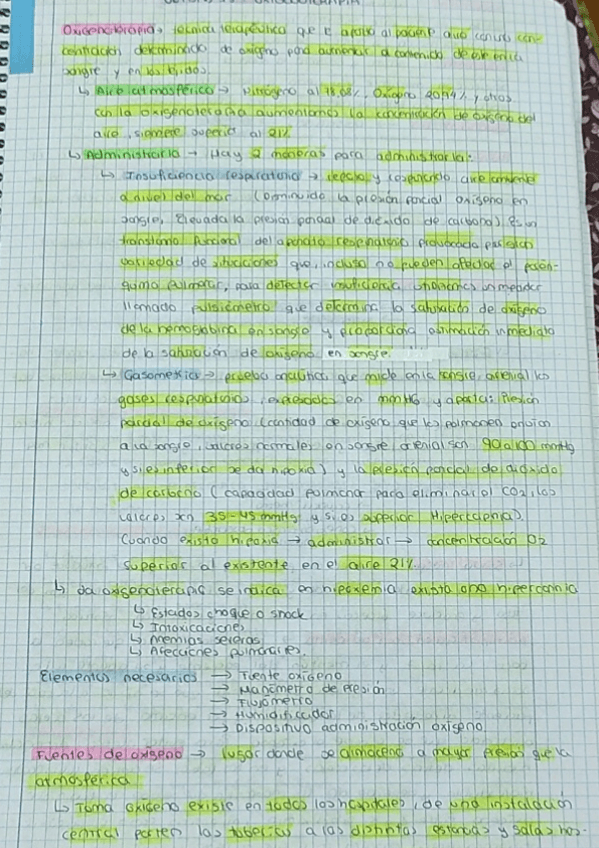 Oxigenoterapia → técnica terapéutica que se aplica al paciente aire con una con-
centración determinada de oxígeno para aumentar el contenido de este en la
sangre y en los tejidos.
↳ Aire atmosférico → Nitrógeno al 78,08%, Oxígeno 20,94% y otros
con la oxigenoterapia aumentamos la concentración de oxígeno del
aire, siempre superior al 21%
↳ Administrarla → Hay 2 maneras para administrarla:
↳ Insuficiencia respiratoria → reposo y respirando aire ambiente
a nivel del mar (Disminuido la presión parcial oxígeno en
sangre, Elevada la presión parcial de dióxido de carbono) Es un
transtorno funcional del aparato respiratorio provocada por gran
variedad de situaciones que, incluso no pueden afectar al parén-
quima pulmonar, para detectar insuficiencia utilizamos un medidor
llamado pulsiómetro que determina la saturación de oxígeno
de la hemoglobina en sangre y proporciona estimación inmediata
de la saturación de oxígeno en sangre.
↳ Gasometría → prueba analítica que mide en la sangre arterial los
gases respiratorios, expresados en mmHg y aporta: Presión
parcial de oxígeno (cantidad de oxígeno que los pulmones envían
a la sangre, valores normales en sangre arterial son 90 a 100 mmHg
y si es inferior se da hipoxia) y la presión parcial de dióxido
de carbono (capacidad pulmonar para eliminar el CO2, los
valores son 35-45 mmHg y si es superior Hipercapnia).
Cuando exista hipoxia → administrar → concentración O2
superior al existente en el aire 21%.
↳ La oxigenoterapia se indica en hipoxemia exista o no hipercapnia
↳ Estados choque o shock
↳ Intoxicaciones
↳ Anemias severas
↳ Afecciones pulmonares.
Elementos necesarios → Fuente oxígeno
→ Manómetro de presión
→ Flujómetro
→ Humidificador
→ Dispositivo administración oxígeno
Fuentes de oxígeno → Lugar donde se almacena a mayor presión que la
atmosférica
↳ Toma oxígeno existe en todos los hospitales, de una instalación
central parten las tuberías a las distintas estancias y salas hos-